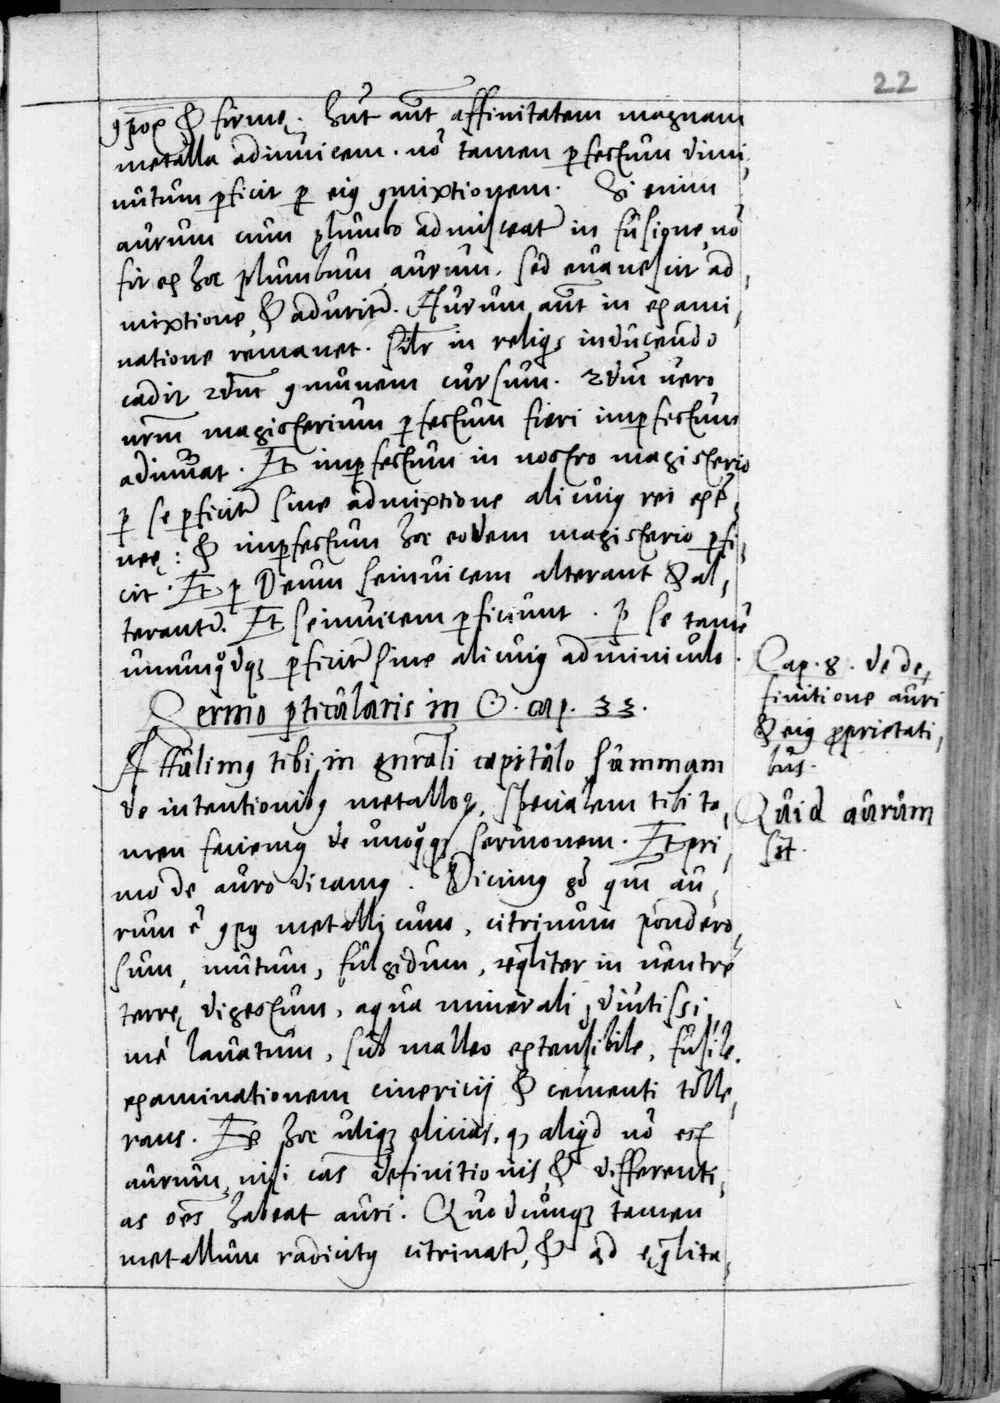 22
ꝯpox & firmę. Hñt aũt affinitatem magnam
metalla adinvicem. nõ tamen ꝑfectum dimi,
nutum ꝑficit ꝑ eiꝰ ꝯmixtionem. Si enim
aurum cum plumbo admisceat᷑ in fusione, nõ
fit ex hoc plumbum aurum. sed evanescit ad
mixtione, & adurit᷑. Aurum aũt in exami,
natione remanet. Silr in reliqis inducendo
cadit 2dm̃ ꝯmunem cursum. 2dm̃ vero
nrm̃ magisterium ꝑfectum fieri imꝑfectum
adiuvat. Et imꝑfectum in nostro magisterio
ꝑ se ꝑficit᷑ sine admixtione alicuiꝰ rei ext̃,
neę: & imꝑfectum hoc eodem magisterio ꝑfi,
cit. Et ꝑ Deum seinvicem alterant & al,
terant᷑. Et seinvicem ꝑficiunt. ꝑ se tamẽ
unumqdqꝫ ꝑficit᷑ sine alicuiꝰ adminiculo.
Sermo ꝑticularis in ☉. cap. 33.
Attulimꝰ tibi in gnrali capitulo summam
de intentionibꝰ metalloꝝ, specialem tibi ta,
men faciemꝰ de unoqqꝫ sermonem. Et pri,
mo de auro dicamꝰ. Dicimꝰ gõ qm̃ au,
rum ẽ ꝯpꝰ metallicum, citrinum pondero,
sum, mutum, fulgidum, eqliter in ventre
terrę digestum, aqua minerali, diutissi,
me lavatum, sub malleo extensibile, fusile.
examinationem cinericij & cementi tolle,
rans. Ex hoc utiqꝫ elicias, qꝫ aliqd nõ est
aurum, nisi cãs definitionis & differenti,
as oẽs habeat auri. Quodcumqꝫ tamen
metallum radicitꝰ citrinat᷑, & ad eqlita,
Cap. 8. de de,
finitione auri
& eiꝰ ꝓprietati,
bus.
Quid aurum
sit.